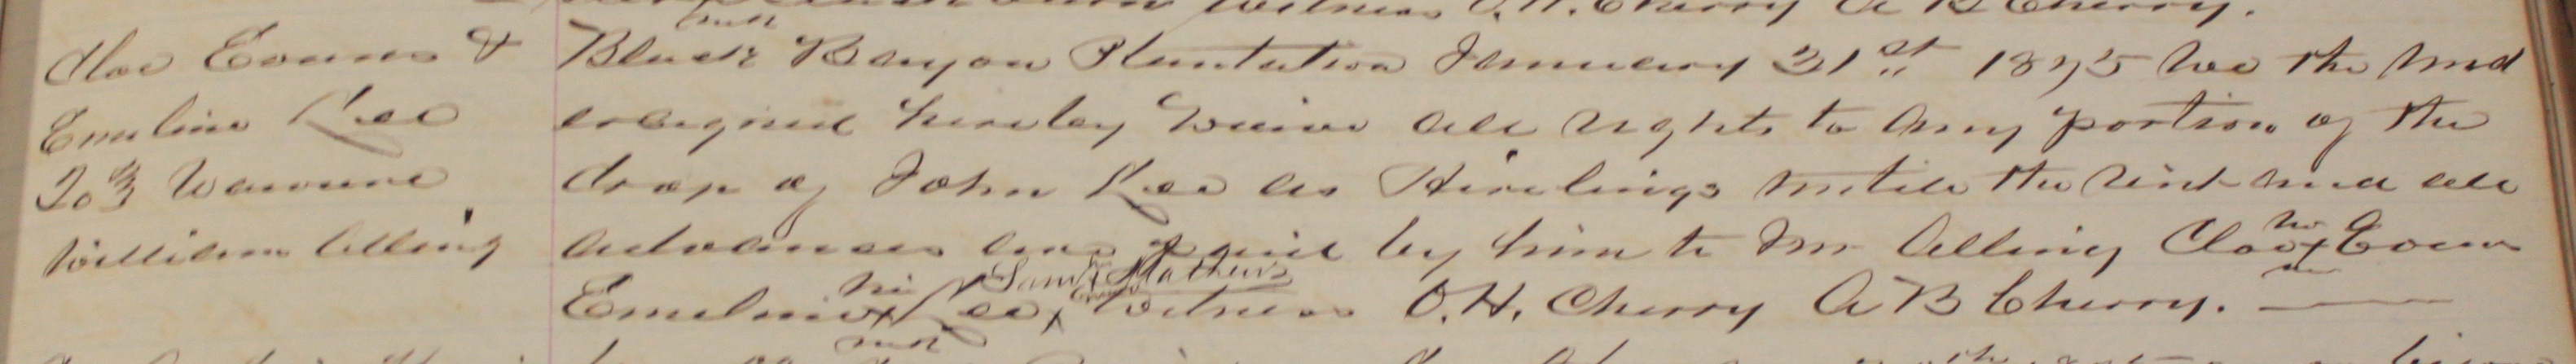 Witness O. H. Cherry A B Cherry.
Cloe Evans &
Emeline Lee
To } Waivure
William Alling
mark
Black Bayou Plantation January 31st 1875 We the und
ersigned hereby Waive all rights to any portion of the
Crop of John Lee as Hirelings until the rint and all
advances are paid by him to Wm Alling Cloe his x mark Evans
Emeline his x mark Lee, x Sam his x mark Mathews Witness O. H. Cherry A B Cherry.